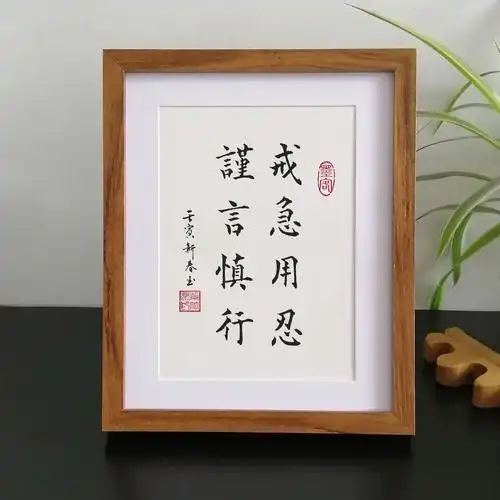 戒急用忍
謹言慎行
壬寅新春书